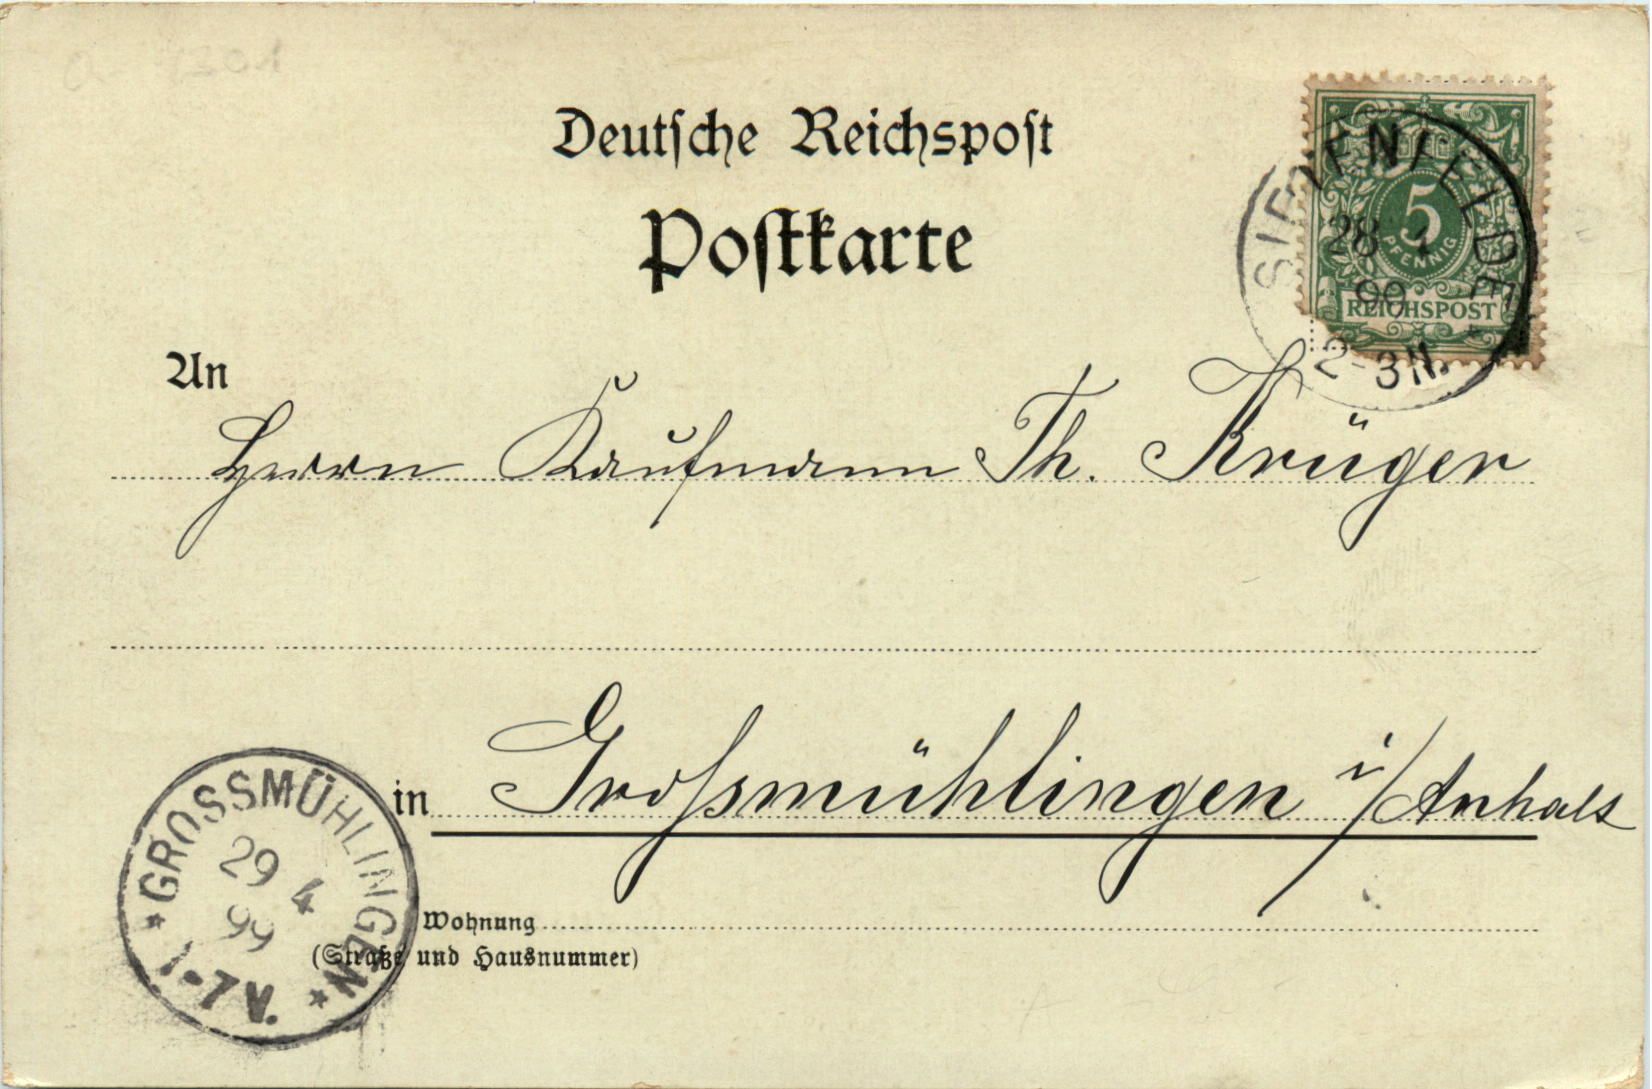 Deutsche Reichspost
Postkarte
5
PFENNIG
REICHSPOST
28 4
99
2-3 N.
An
Herrn Kaufmann Th. Krüger
in Grossmühlingen i/Anhalt
GROSSMÜHLINGEN
29 4
99
1-7 V.
Wohnung
(Straße und Hausnummer)